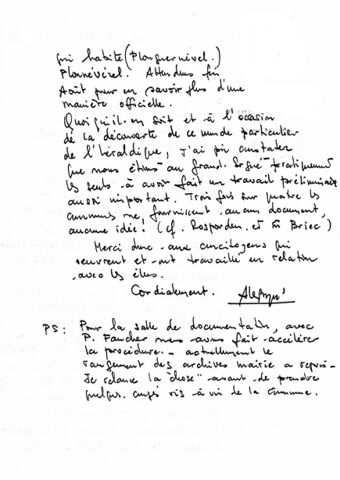 qui habite (Plouguernével.)
Plonévével. Attendons fin
Août pour en savoir plus d'une
manière officielle.
Quoiqu'il en soit et à l'occasion
de la découverte de ce monde particulier
de l'héraldique, j'ai pu constater
que nous étions au grand. Ergué pratiquement
les seuls à avoir fait un travail préliminaire
aussi important. Trois fois sur quatre les
communes ne fournissent aucun document,
aucune idée! (cf. Rosporden. et St Briec)
Merci donc aux concitoyens qui
oeuvrent et ont travaillé en relation
avec les élus.
Cordialement.
PS: Pour la salle de documentation, avec
P. Faucher nous avons fait accélérer
la procédure. - actuellement le
rangement des archives mairie a repris -
Je relance la "chose" avant de prendre
quelques congés vis à vis de la commune.